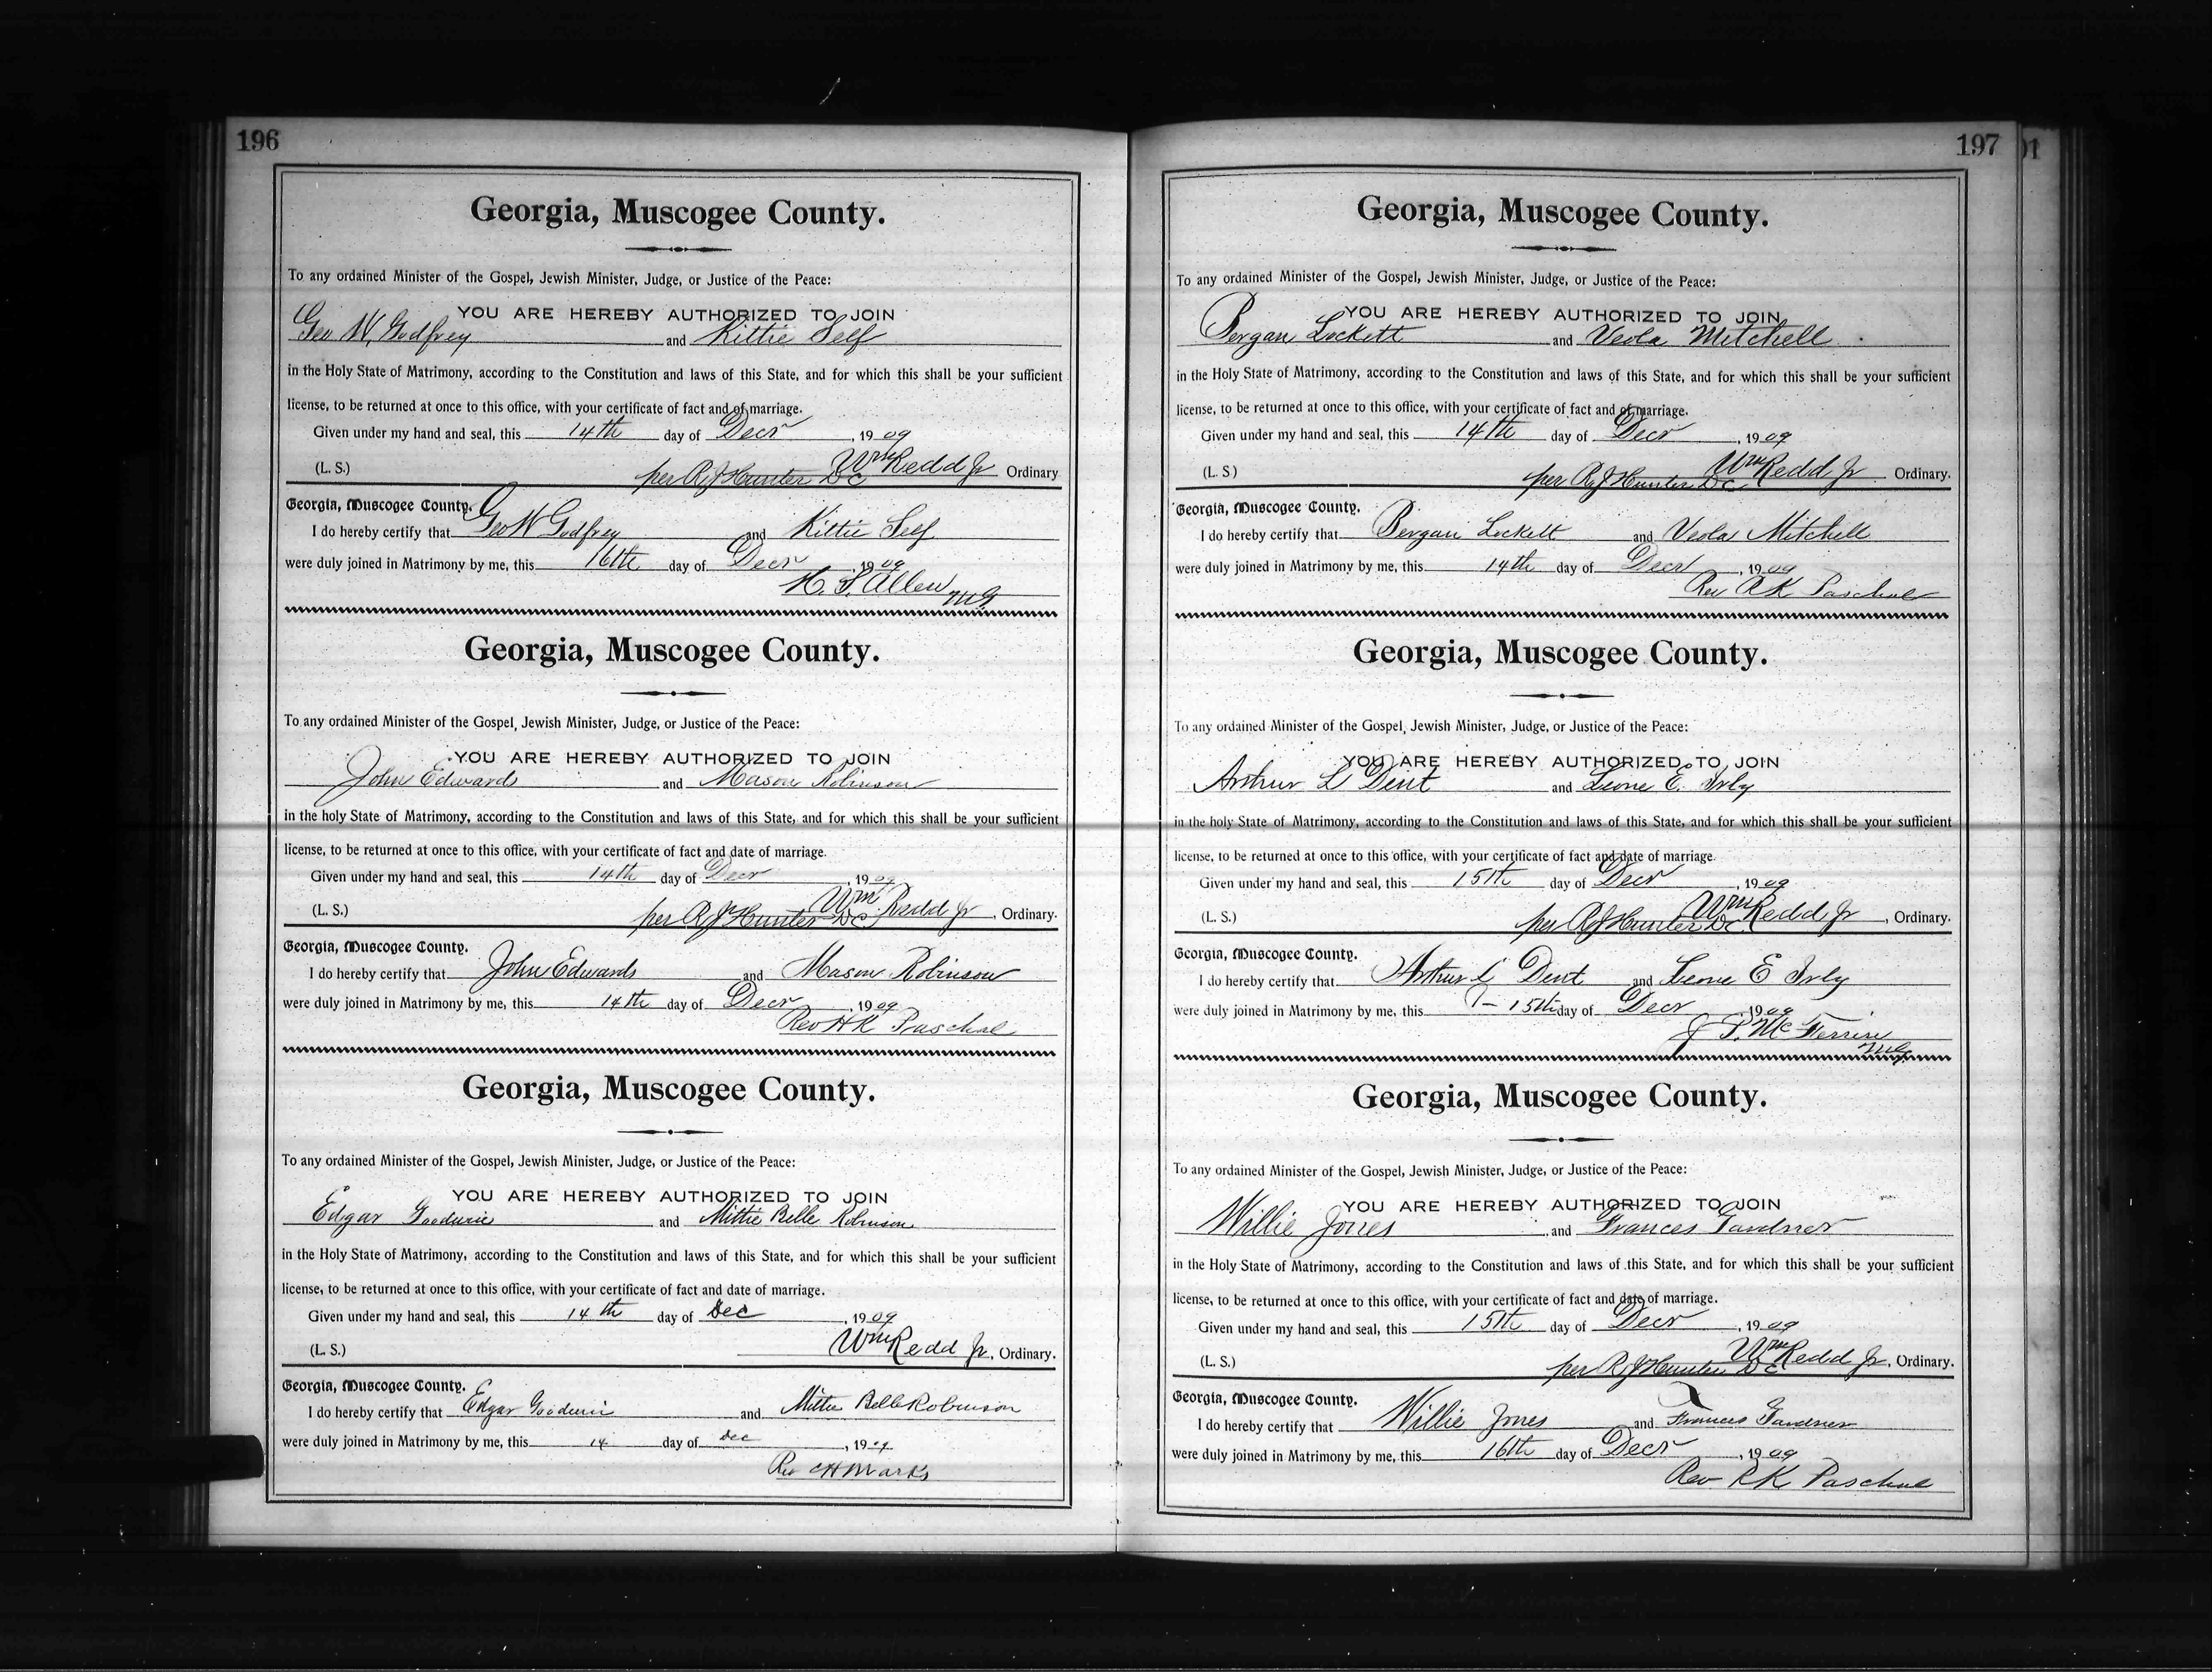 196
Georgia, Muscogee County.
To any ordained Minister of the Gospel, Jewish Minister, Judge, or Justice of the Peace:
YOU ARE HEREBY AUTHORIZED TO JOIN
Geo W. Godfrey and Kittie Self
in the Holy State of Matrimony, according to the Constitution and laws of this State, and for which this shall be your sufficient
license, to be returned at once to this office, with your certificate of fact and of marriage.
Given under my hand and seal, this 14th day of Decr, 1909
(L. S.) per R J Hunter DC Wm Redd Jr Ordinary
Georgia, Muscogee County.
I do hereby certify that Geo W Godfrey and Kittie Self
were duly joined in Matrimony by me, this 16th day of Decr, 1909
H. S. Allen MG
Georgia, Muscogee County.
To any ordained Minister of the Gospel, Jewish Minister, Judge, or Justice of the Peace:
YOU ARE HEREBY AUTHORIZED TO JOIN
John Edwards and Mason Robinson
in the holy State of Matrimony, according to the Constitution and laws of this State, and for which this shall be your sufficient
license, to be returned at once to this office, with your certificate of fact and date of marriage.
Given under my hand and seal, this 14th day of Decr, 1909
(L. S.) per R J Hunter DC Wm Redd Jr, Ordinary.
Georgia, Muscogee County.
I do hereby certify that John Edwards and Mason Robinson
were duly joined in Matrimony by me, this 14th day of Decr, 1909
Rev H K Paschal
Georgia, Muscogee County.
To any ordained Minister of the Gospel, Jewish Minister, Judge, or Justice of the Peace:
YOU ARE HEREBY AUTHORIZED TO JOIN
Edgar and Mittie Belle Robinson
in the Holy State of Matrimony, according to the Constitution and laws of this State, and for which this shall be your sufficient
license, to be returned at once to this office, with your certificate of fact and date of marriage.
Given under my hand and seal, this 14th day of Dec, 1909
(L. S.) Wm Redd Jr, Ordinary.
Georgia, Muscogee County.
I do hereby certify that Edgar and Mittie Belle Robinson
were duly joined in Matrimony by me, this 14 day of Dec, 1909
Rev C H Marks
197
Georgia, Muscogee County.
To any ordained Minister of the Gospel, Jewish Minister, Judge, or Justice of the Peace:
YOU ARE HEREBY AUTHORIZED TO JOIN
Pergan Lockett and Veola Mitchell
in the Holy State of Matrimony, according to the Constitution and laws of this State, and for which this shall be your sufficient
license, to be returned at once to this office, with your certificate of fact and of marriage.
Given under my hand and seal, this 14th day of Decr, 1909
(L. S) per R J Hunter DC Wm Redd Jr Ordinary.
Georgia, Muscogee County.
I do hereby certify that Pergan Lockett and Veola Mitchell
were duly joined in Matrimony by me, this 14th day of Decr, 1909
Rev R K Paschal
Georgia, Muscogee County.
To any ordained Minister of the Gospel, Jewish Minister, Judge, or Justice of the Peace:
YOU ARE HEREBY AUTHORIZED TO JOIN
Arthur L Dent and Leone E. Irby
in the holy State of Matrimony, according to the Constitution and laws of this State, and for which this shall be your sufficient
license, to be returned at once to this office, with your certificate of fact and date of marriage.
Given under my hand and seal, this 15th day of Decr, 1909
(L. S.) per R J Hunter DC Wm Redd Jr, Ordinary.
Georgia, Muscogee County.
I do hereby certify that Arthur L Dent and Leone E Irby
were duly joined in Matrimony by me, this 15th day of Decr, 1909
J P. McFerrin MG
Georgia, Muscogee County.
To any ordained Minister of the Gospel, Jewish Minister, Judge, or Justice of the Peace:
YOU ARE HEREBY AUTHORIZED TO JOIN
Willie Jones and Frances Gardner
in the Holy State of Matrimony, according to the Constitution and laws of this State, and for which this shall be your sufficient
license, to be returned at once to this office, with your certificate of fact and date of marriage.
Given under my hand and seal, this 15th day of Decr, 1909
(L. S.) per R J Hunter DC Wm Redd Jr, Ordinary.
Georgia, Muscogee County.
I do hereby certify that Willie Jones and Frances Gardner
were duly joined in Matrimony by me, this 16th day of Decr, 1909
Rev R K Paschal